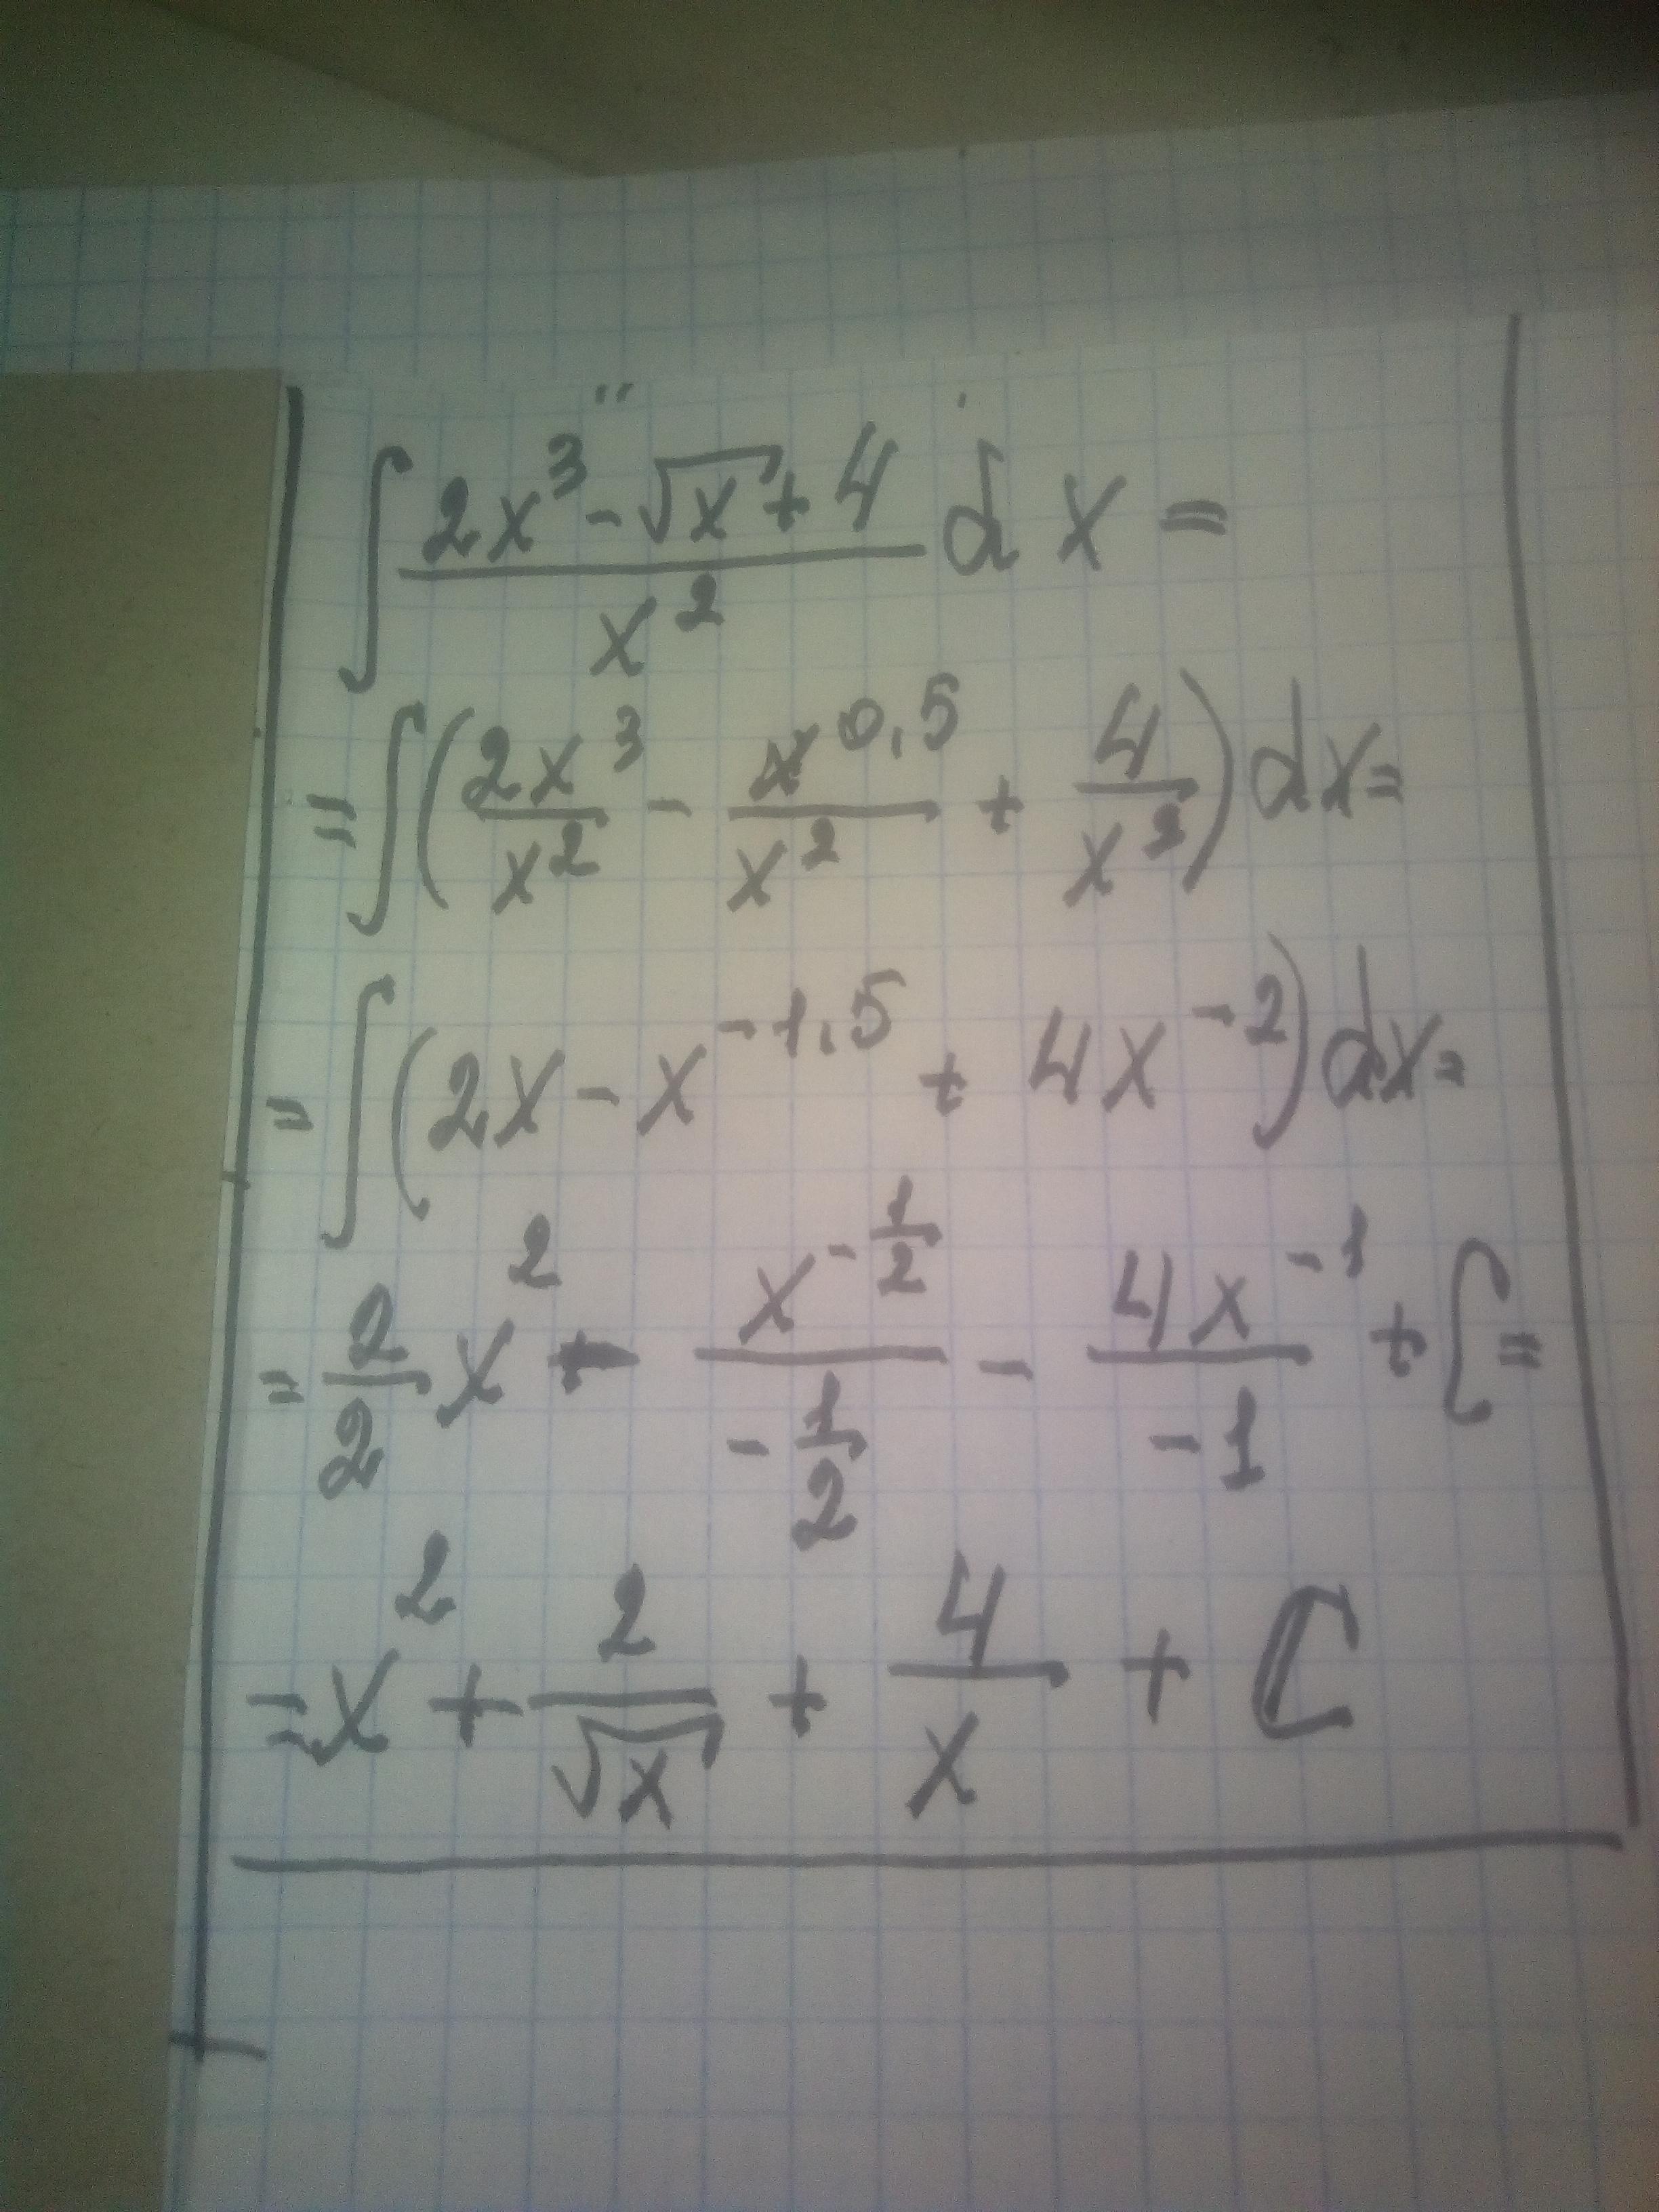 ∫ (2x³ - √x + 4)/x² dx =
= ∫ (2x³/x² - x^0,5/x² + 4/x²) dx =
= ∫ (2x - x^-1,5 + 4x^-2) dx =
= 2/2 x² - x^(-1/2)/(-1/2) - 4x^-1/-1 + C =
= x² + 2/√x + 4/x + C